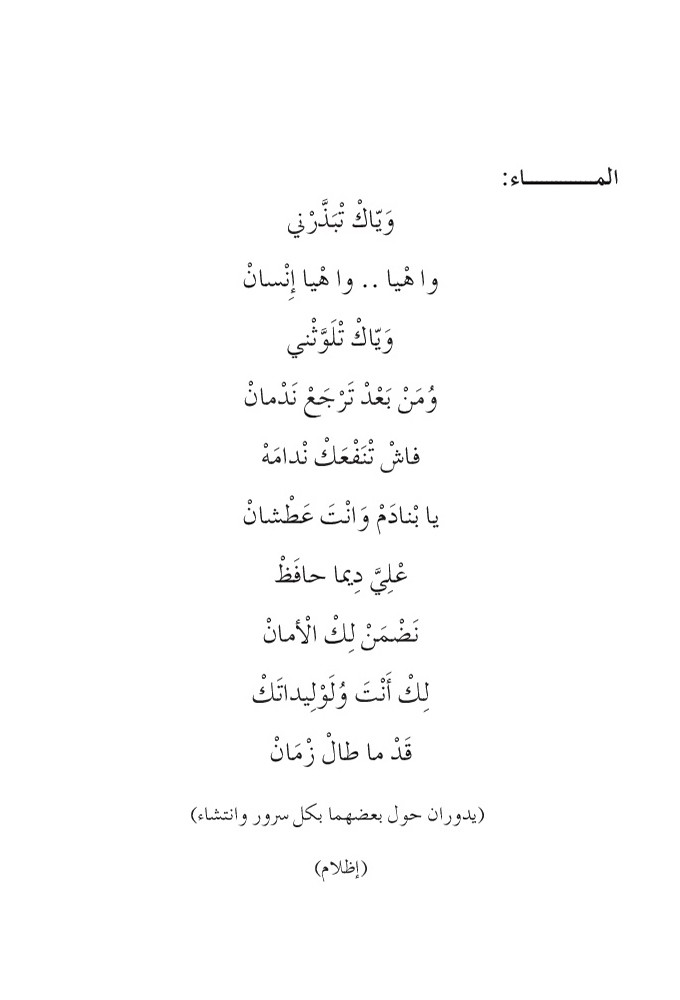 المـــــــــاء:
وَيّاكْ تْبَذَّرْني
وا هْيا .. وا هْيا إِنْسانْ
وَيّاكْ تْلَوَّثْني
وُمَنْ بَعْدْ تَرْجَعْ نَدْمانْ
فاشْ تْنَفْعَكْ نْدامَهْ
يا بْنادَمْ وَانْتَ عَطْشانْ
عْلِيَّ دِيما حافَظْ
نَضْمَنْ لِكْ الْأمانْ
لِكْ أَنْتَ وُلَوْلِيداتَكْ
قَدْ ما طالْ زْمَانْ
(يدوران حول بعضهما بكل سرور وانتشاء)
(إظلام)